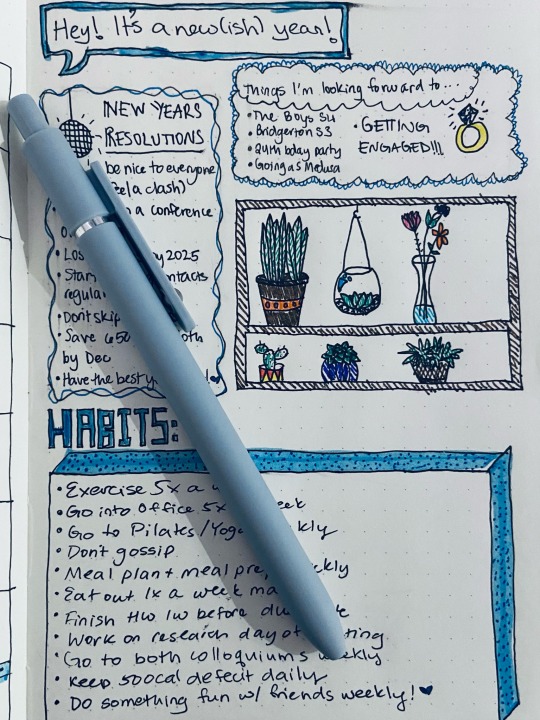 Hey! It's a new(ish) year!
NEW YEARS
RESOLUTIONS
be nice to everyone
clash)
a conference
• Los by 2025
• Star contacts
regular
• Don't skip
• Save 650 both
by Dec
• Have the best y
Things I'm looking forward to...
• The Boys S4
• Bridgerton S3
bday party
• Going as Medusa
• GETTING
ENGAGED!!!
HABITS:
• Exercise 5x a w
• Go into office 5x week
• Go to Pilates/Yoga kly
• Don't gossip
• Meal plan + meal prep weekly
• Eat out 1x a week ma
• Finish HW 1w before du
• Work on research day of ting
• Go to both colloquiums weekly
• Keep 500cal defecit daily
• Do something fun w/ friends weekly!